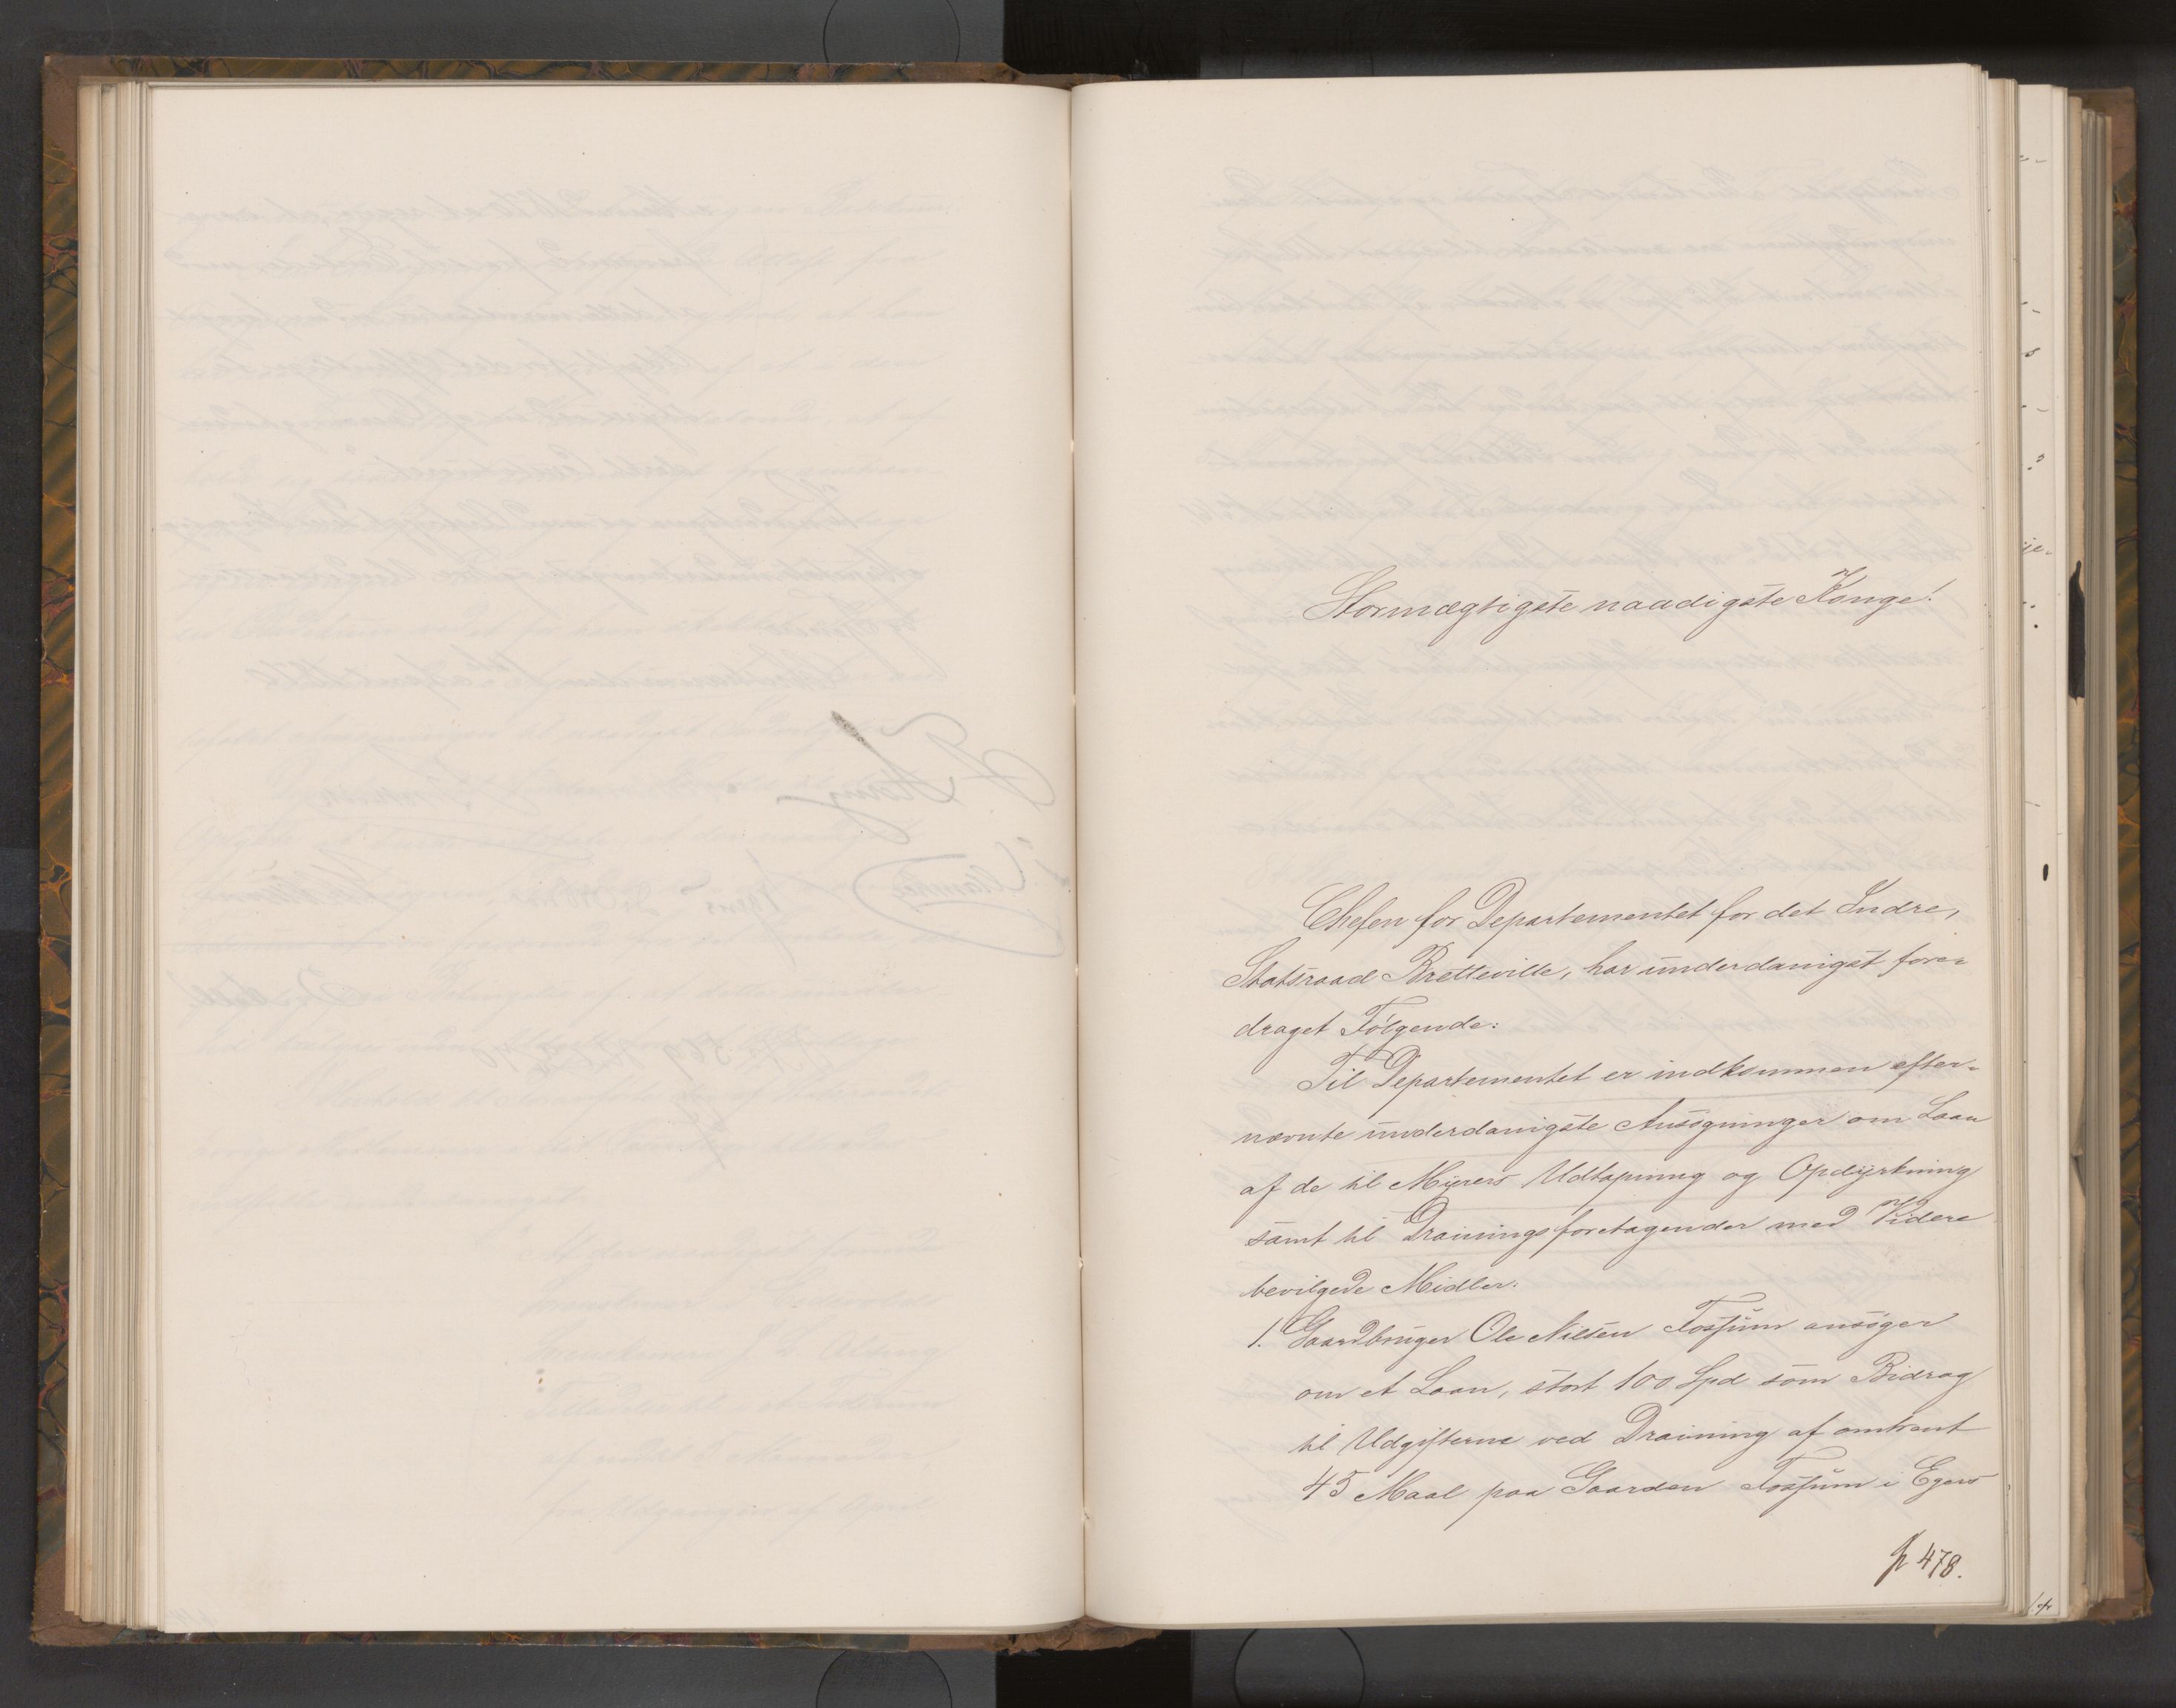 Stormægtigste naadigste Konge!
Chefen for Departementet for det Indre,
Statsraad Bretteville, har underdanigst fore-
draget Følgende:
Til Departementet er indkommen efter-
nævnte underdanigste Ansøgninger om Laan
af de til Myrers Udtapning og Opdyrkning
samt til Drainingsforetagender med Videre
bevilgede Midler:
1. Gaardbruger Ole Nilsen Fossum ansøger
om et Laan, stort 100 Spd som Bidrag
til Udgifterne ved Draining af omtrent
45 Maal paa Gaarden Fossum i Egers
p 478.